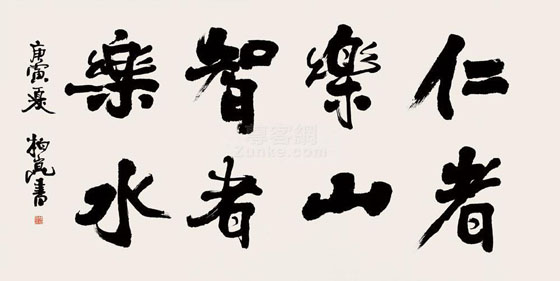 仁者
樂山
智者
樂水
庚寅夏 柏岚書
博客網
Zunke.com